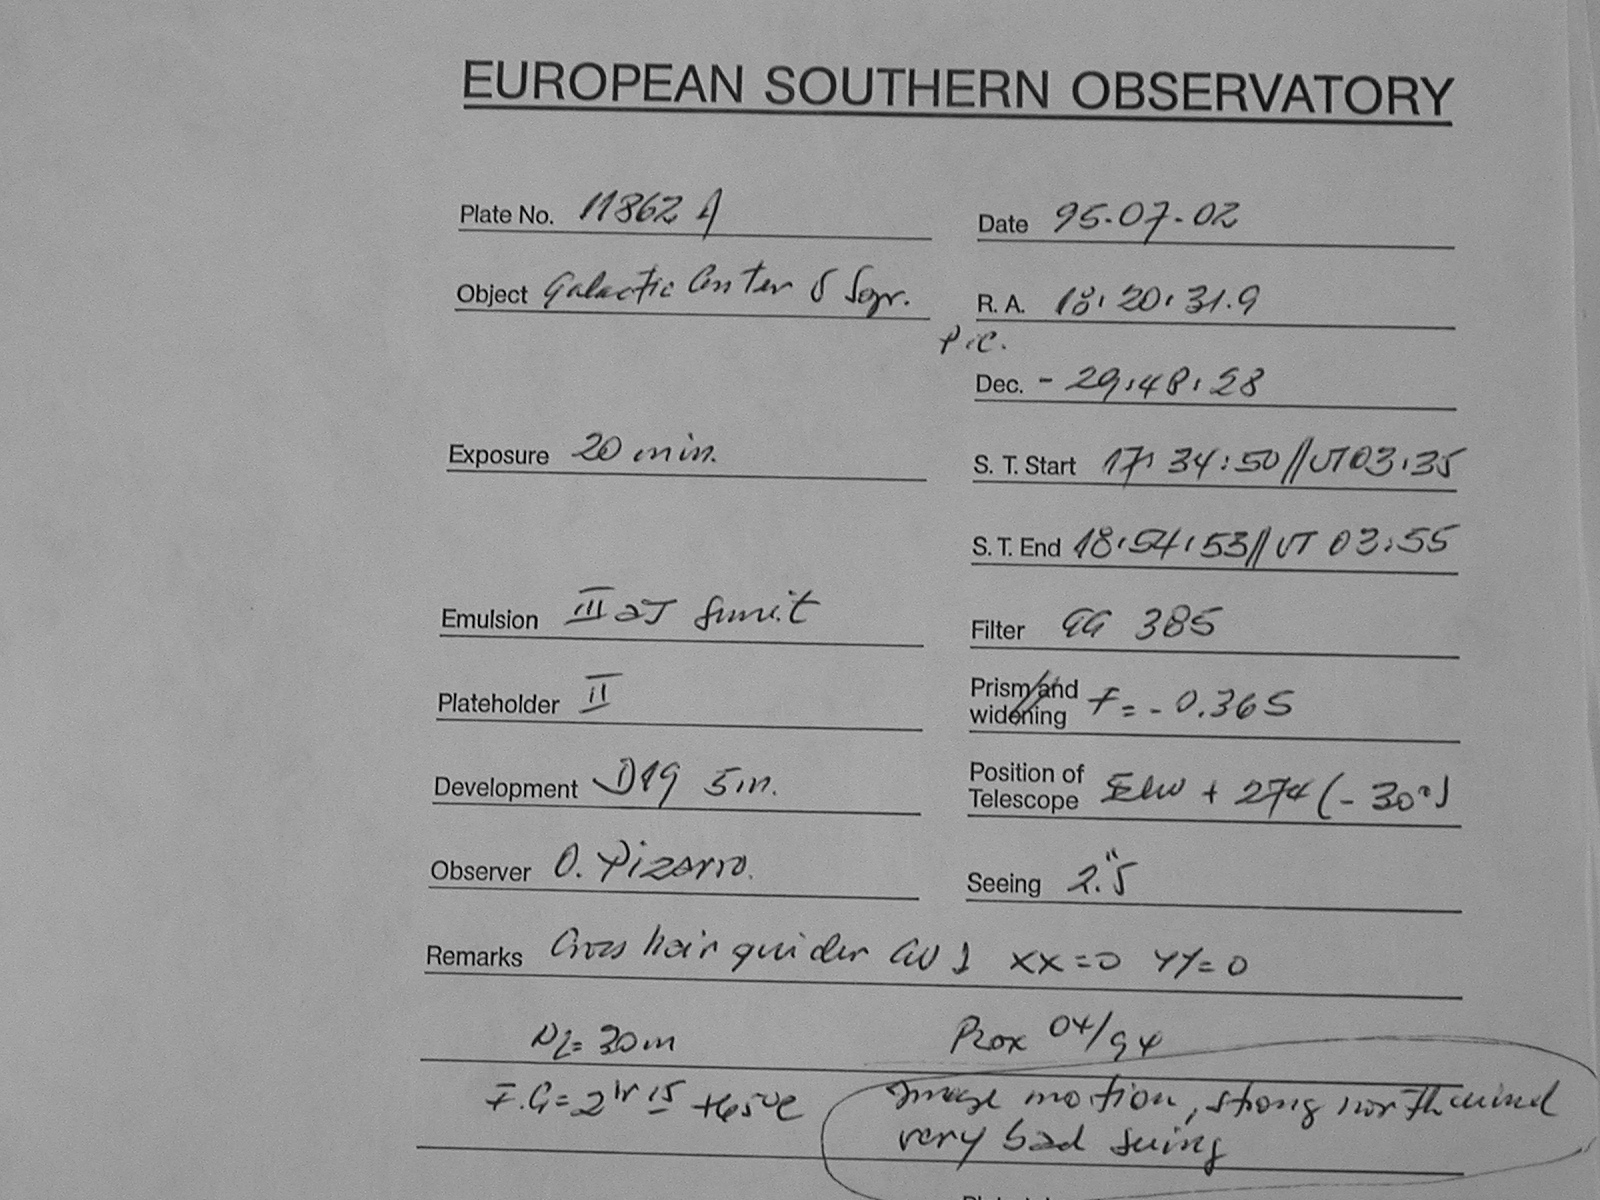 EUROPEAN SOUTHERN OBSERVATORY
Plate No. 11862 A
Date 95-07-02
Object Galactic Center & Sgr.
R. A. 18:20:31.9
Dec. - 29:48:28
Exposure 20 min.
S. T. Start 17 34:50 // UT 03:35
S. T. End 18:54:53 // UT 03:55
Emulsion III aJ
Filter GG 385
Plateholder II
Prism and widening F = - 0.365
Development D19 5m.
Position of Telescope + 274 (- 30°)
Observer O. Pizarro.
Seeing 2".5
Remarks Cross hair guider XX = 0 YY = 0
N2 = 30m
04/94
F.G = 2hr 15 +65°C
Image motion, strong north wind
very bad seeing